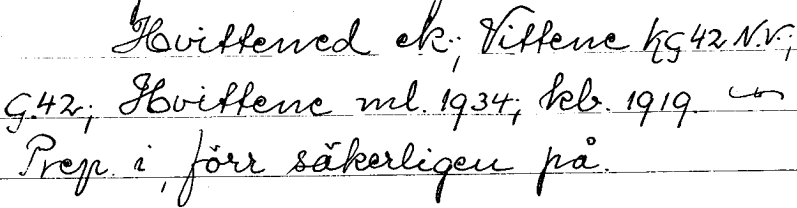 Hvittened ek.; Vittene kg 42 N.V.;
G.42; Hvittene ml. 1934; kb. 1919.
Prep. i, förr säkerligen på.